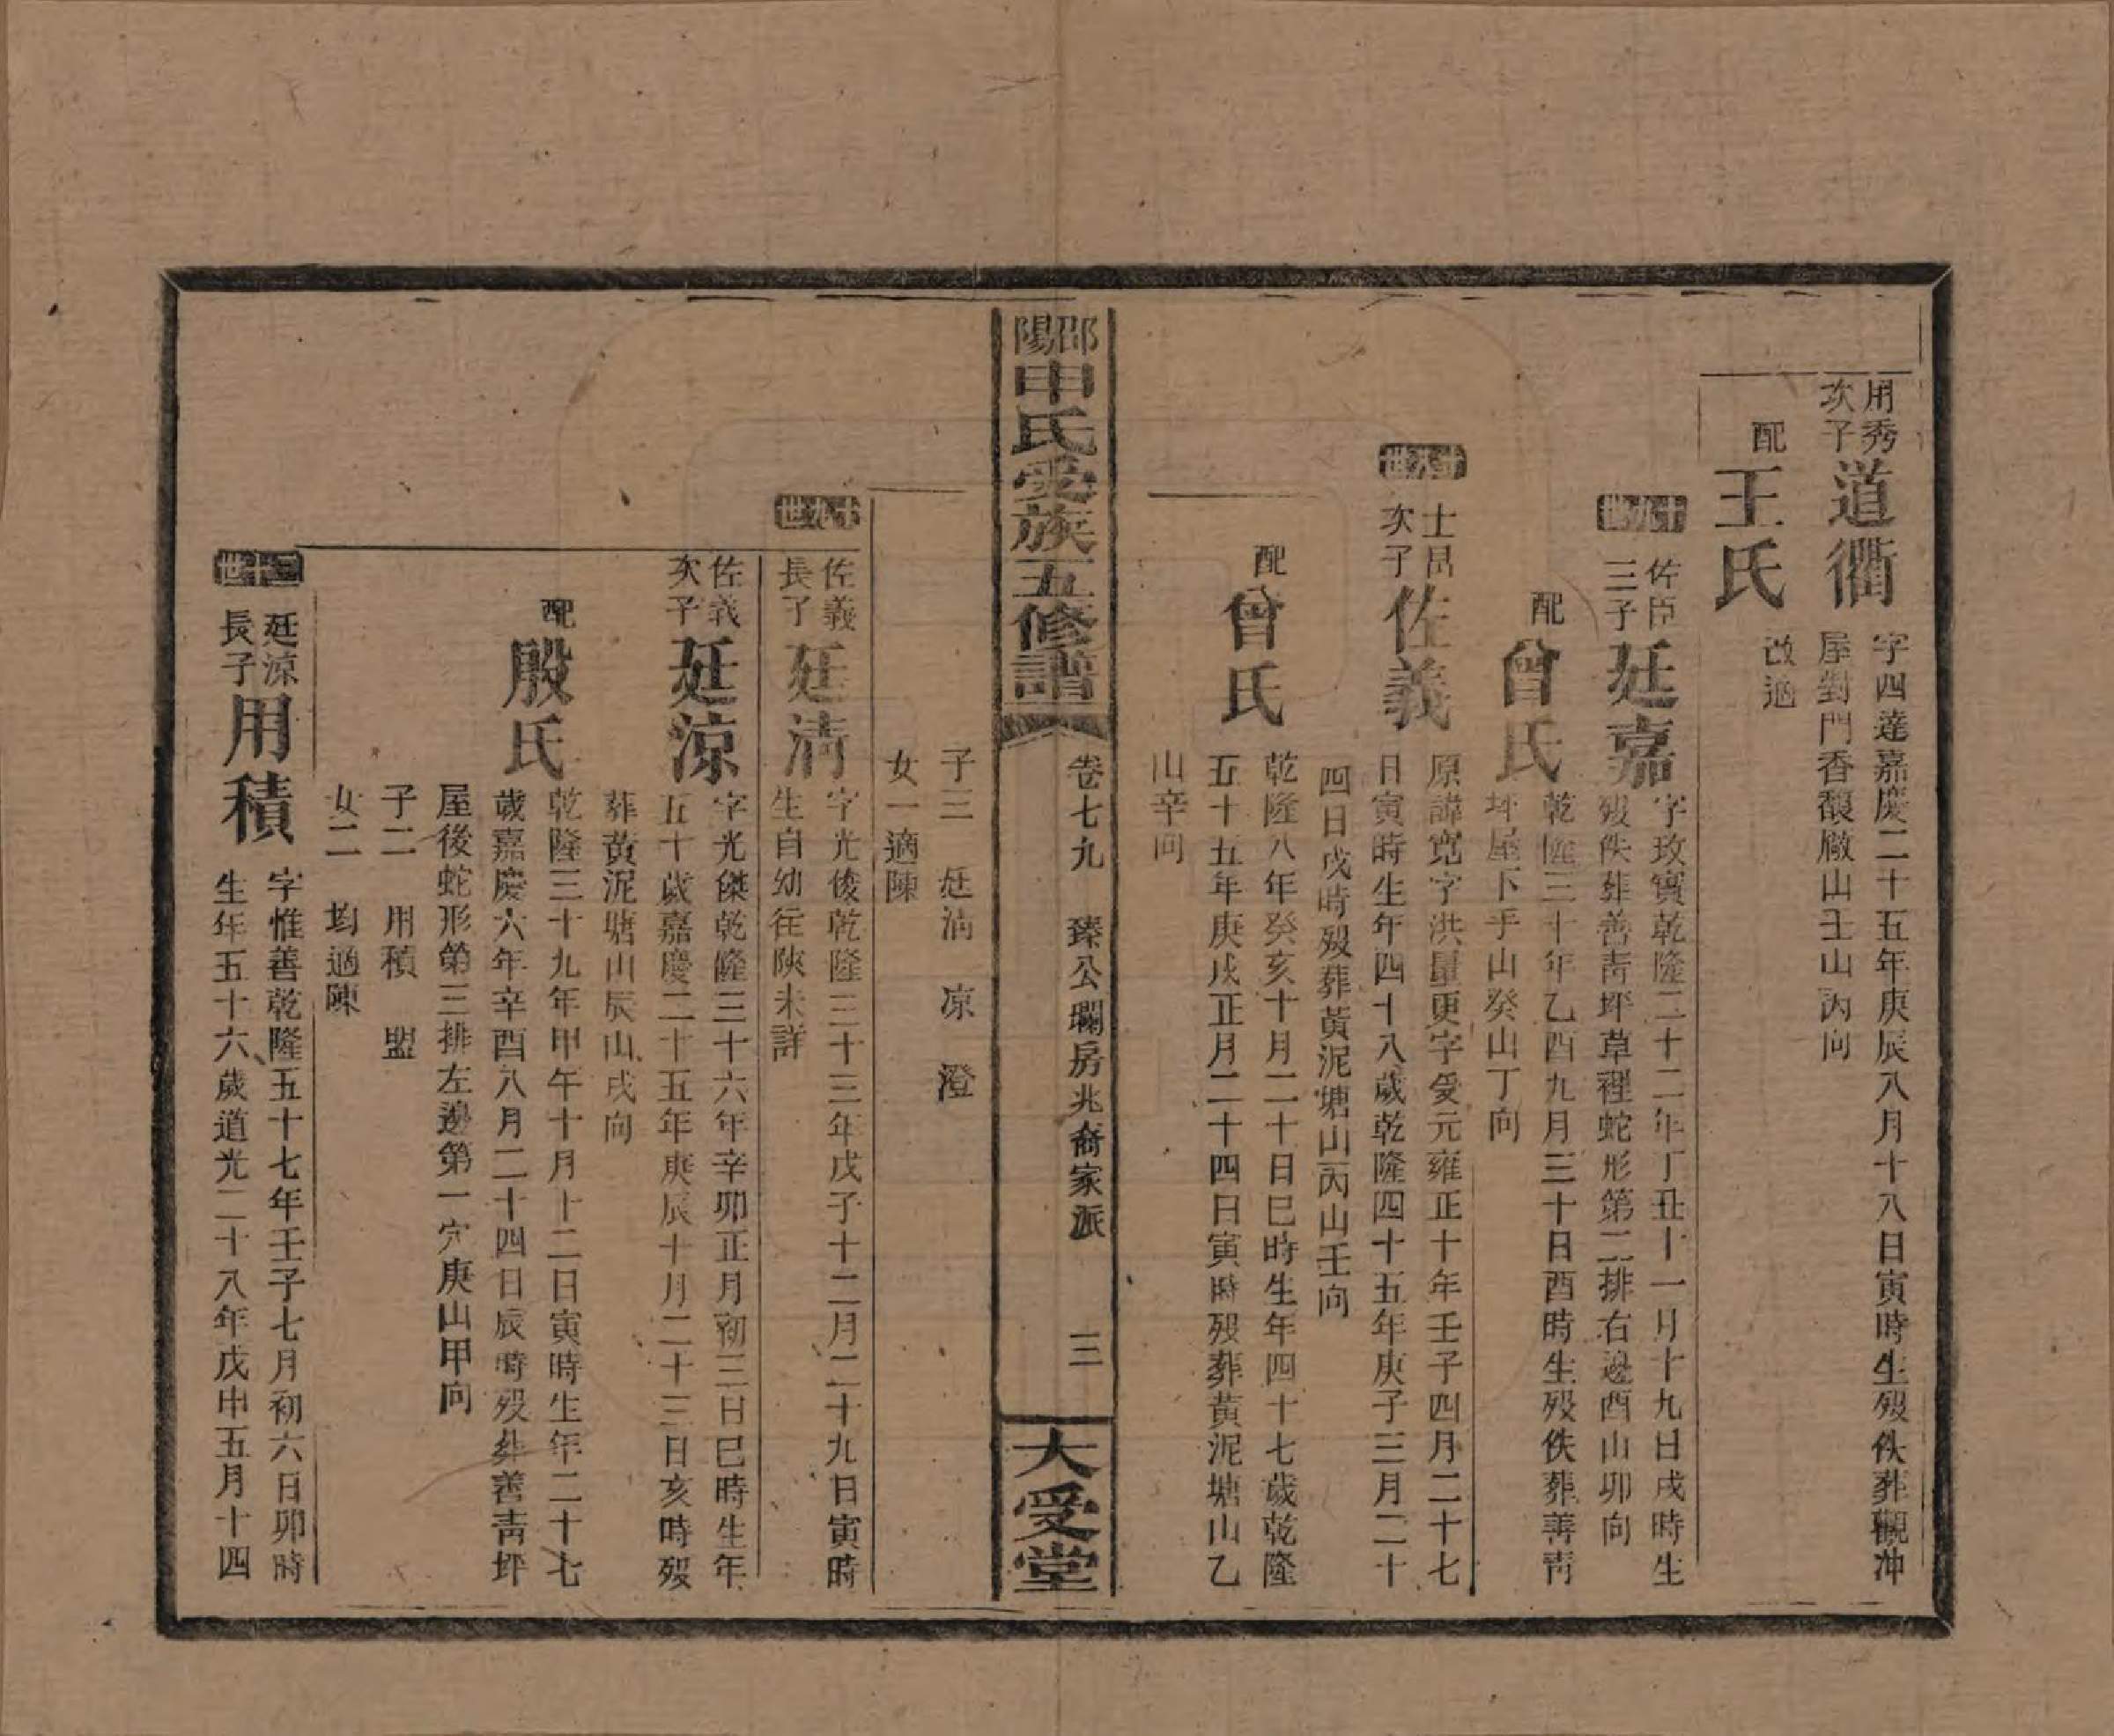 用秀
次子
道衢
字四達嘉慶二十五年庚辰八月十八日寅時生歿佚葬觀冲
屋對門香馥廠山壬山丙向
配
王氏
改適
十九世
佐臣
三子
廷嘉
字玫寶乾隆二十二年丁丑十一月十九日戌時生
歿佚葬善靑坪草裡蛇形第二排右邊酉山卯向
配
曾氏
乾隆三十年乙酉九月三十日酉時生歿佚葬善靑
坪屋下手山癸山丁向
十八世
士昌
次子
佐義
原諱寬字洪量更字受元雍正十年壬子四月二十七
日寅時生年四十八歲乾隆四十五年庚子三月二十
四日戌時歿葬黃泥塘山丙山壬向
配
曾氏
乾隆八年癸亥十月二十日巳時生年四十七歲乾隆
五十五年庚戌正月二十四日寅時歿葬黃泥塘山乙
山辛向
邵陽
申氏受族五修譜
卷七九 臻公瓓房兆裔家派 三
大受堂
子三 廷淸 凉 澄
女一適陳
十九世
佐義
長子
廷淸
字光俊乾隆三十三年戊子十二月二十九日寅時
生自幼往陝未詳
佐義
次子
廷凉
字光傑乾隆三十六年辛卯正月初三日巳時生年
五十歲嘉慶二十五年庚辰十月二十三日亥時歿
葬黃泥塘山辰山戌向
配
殷氏
乾隆三十九年甲午十月十二日寅時生年二十七
歲嘉慶六年辛酉八月二十四日辰時歿葬善靑坪
屋後蛇形第三排左邊第一穴庚山甲向
子二 用積 盟
女二 均適陳
二十世
廷凉
長子
用積
字惟善乾隆五十七年壬子七月初六日卯時
生年五十六歲道光二十八年戊申五月十四